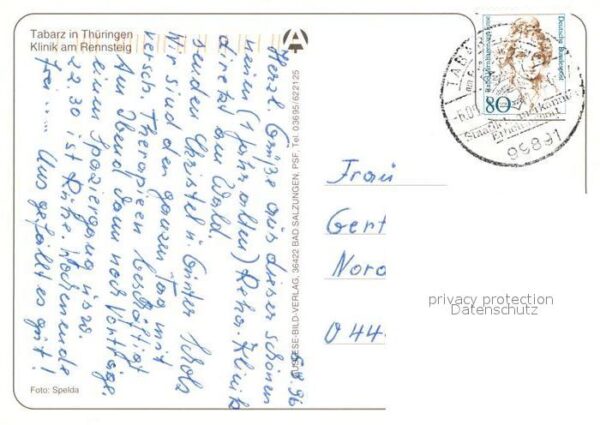 Tabarz in Thüringen
Klinik am Rennsteig
Herzl. Grüße aus dieser schönen
neuen (1 Jahr alten) Reha-Klinik
direkt am Wald
senden Christel u. Günter Scholz
Wir sind den ganzen Tag mit
versch. Therapien beschäftigt
Am Abend dann noch Vorträge.
einem Spaziergang usw.
22.30 ist Ruhe. Wochenende
frei.... Uns gefällt es gut!
8.96
Foto: Spelda
BILD-VERLAG, 36422 BAD SALZUNGEN, PSF, Tel. 03695/622125
Deutsche Bundespost
80
TABARZ
Staatlich anerkannter
Erholungsort
99891
Frau
Gert
Nord
O 44
privacy protection
Datenschutz